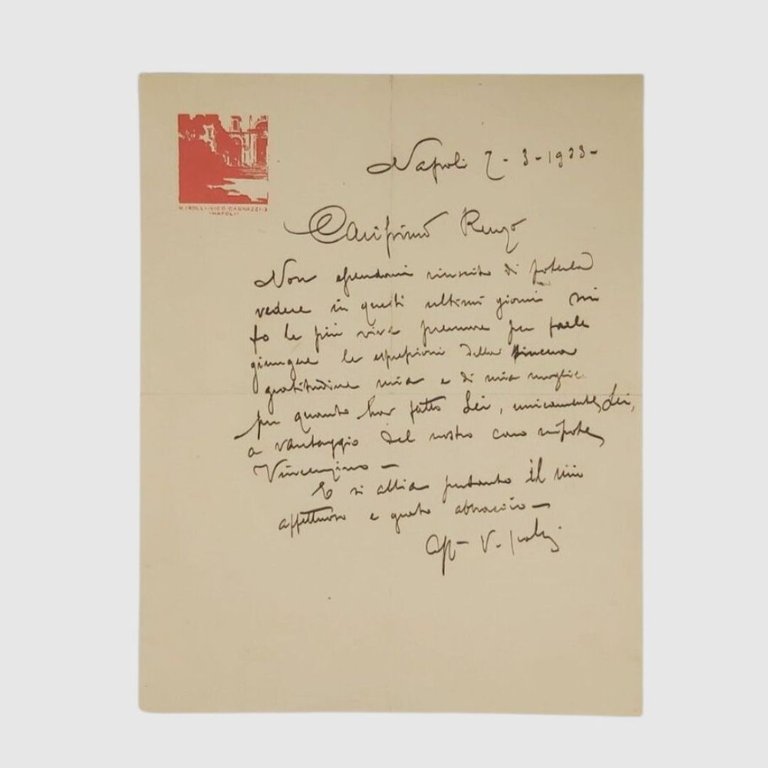 V. IROLLI - VICO CAGNAZZI - 2
- NAPOLI -
Napoli 7 - 3 - 1933 -
Carissimo Renzo
Non essendomi riuscito di poterla
vedere in questi ultimi giorni mi
fo le più vive premure per farle
giungere le espressioni della sincera
gratitudine mia e di mia moglie
per quanto ha fatto Lei, unicamente Lei,
a vantaggio del nostro caro nipote
Vincenzino -
E si abbia pertanto il mio
affettuoso e grato abbraccio -
Aff - V. Irolli